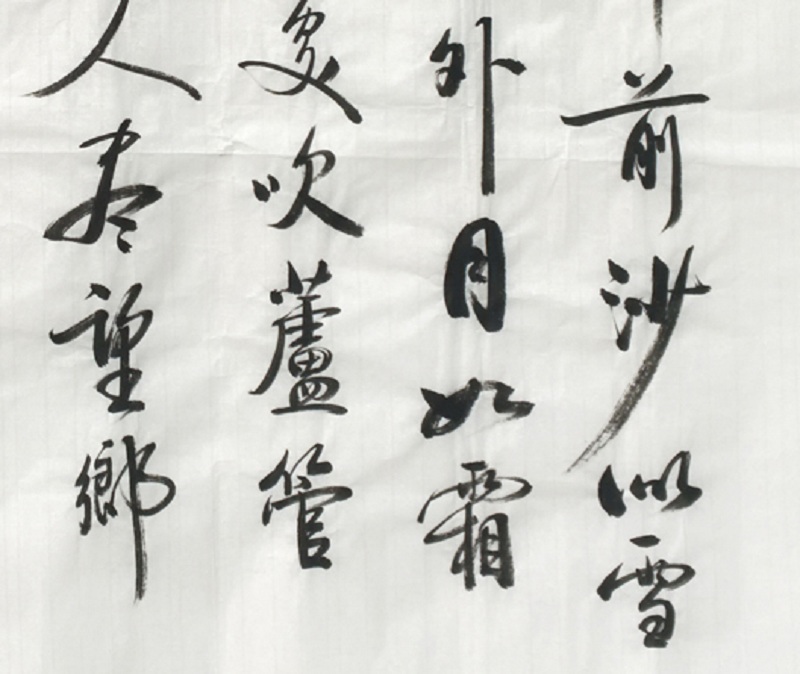 前沙似雪
外月如霜
處吹蘆管
人盡望鄉